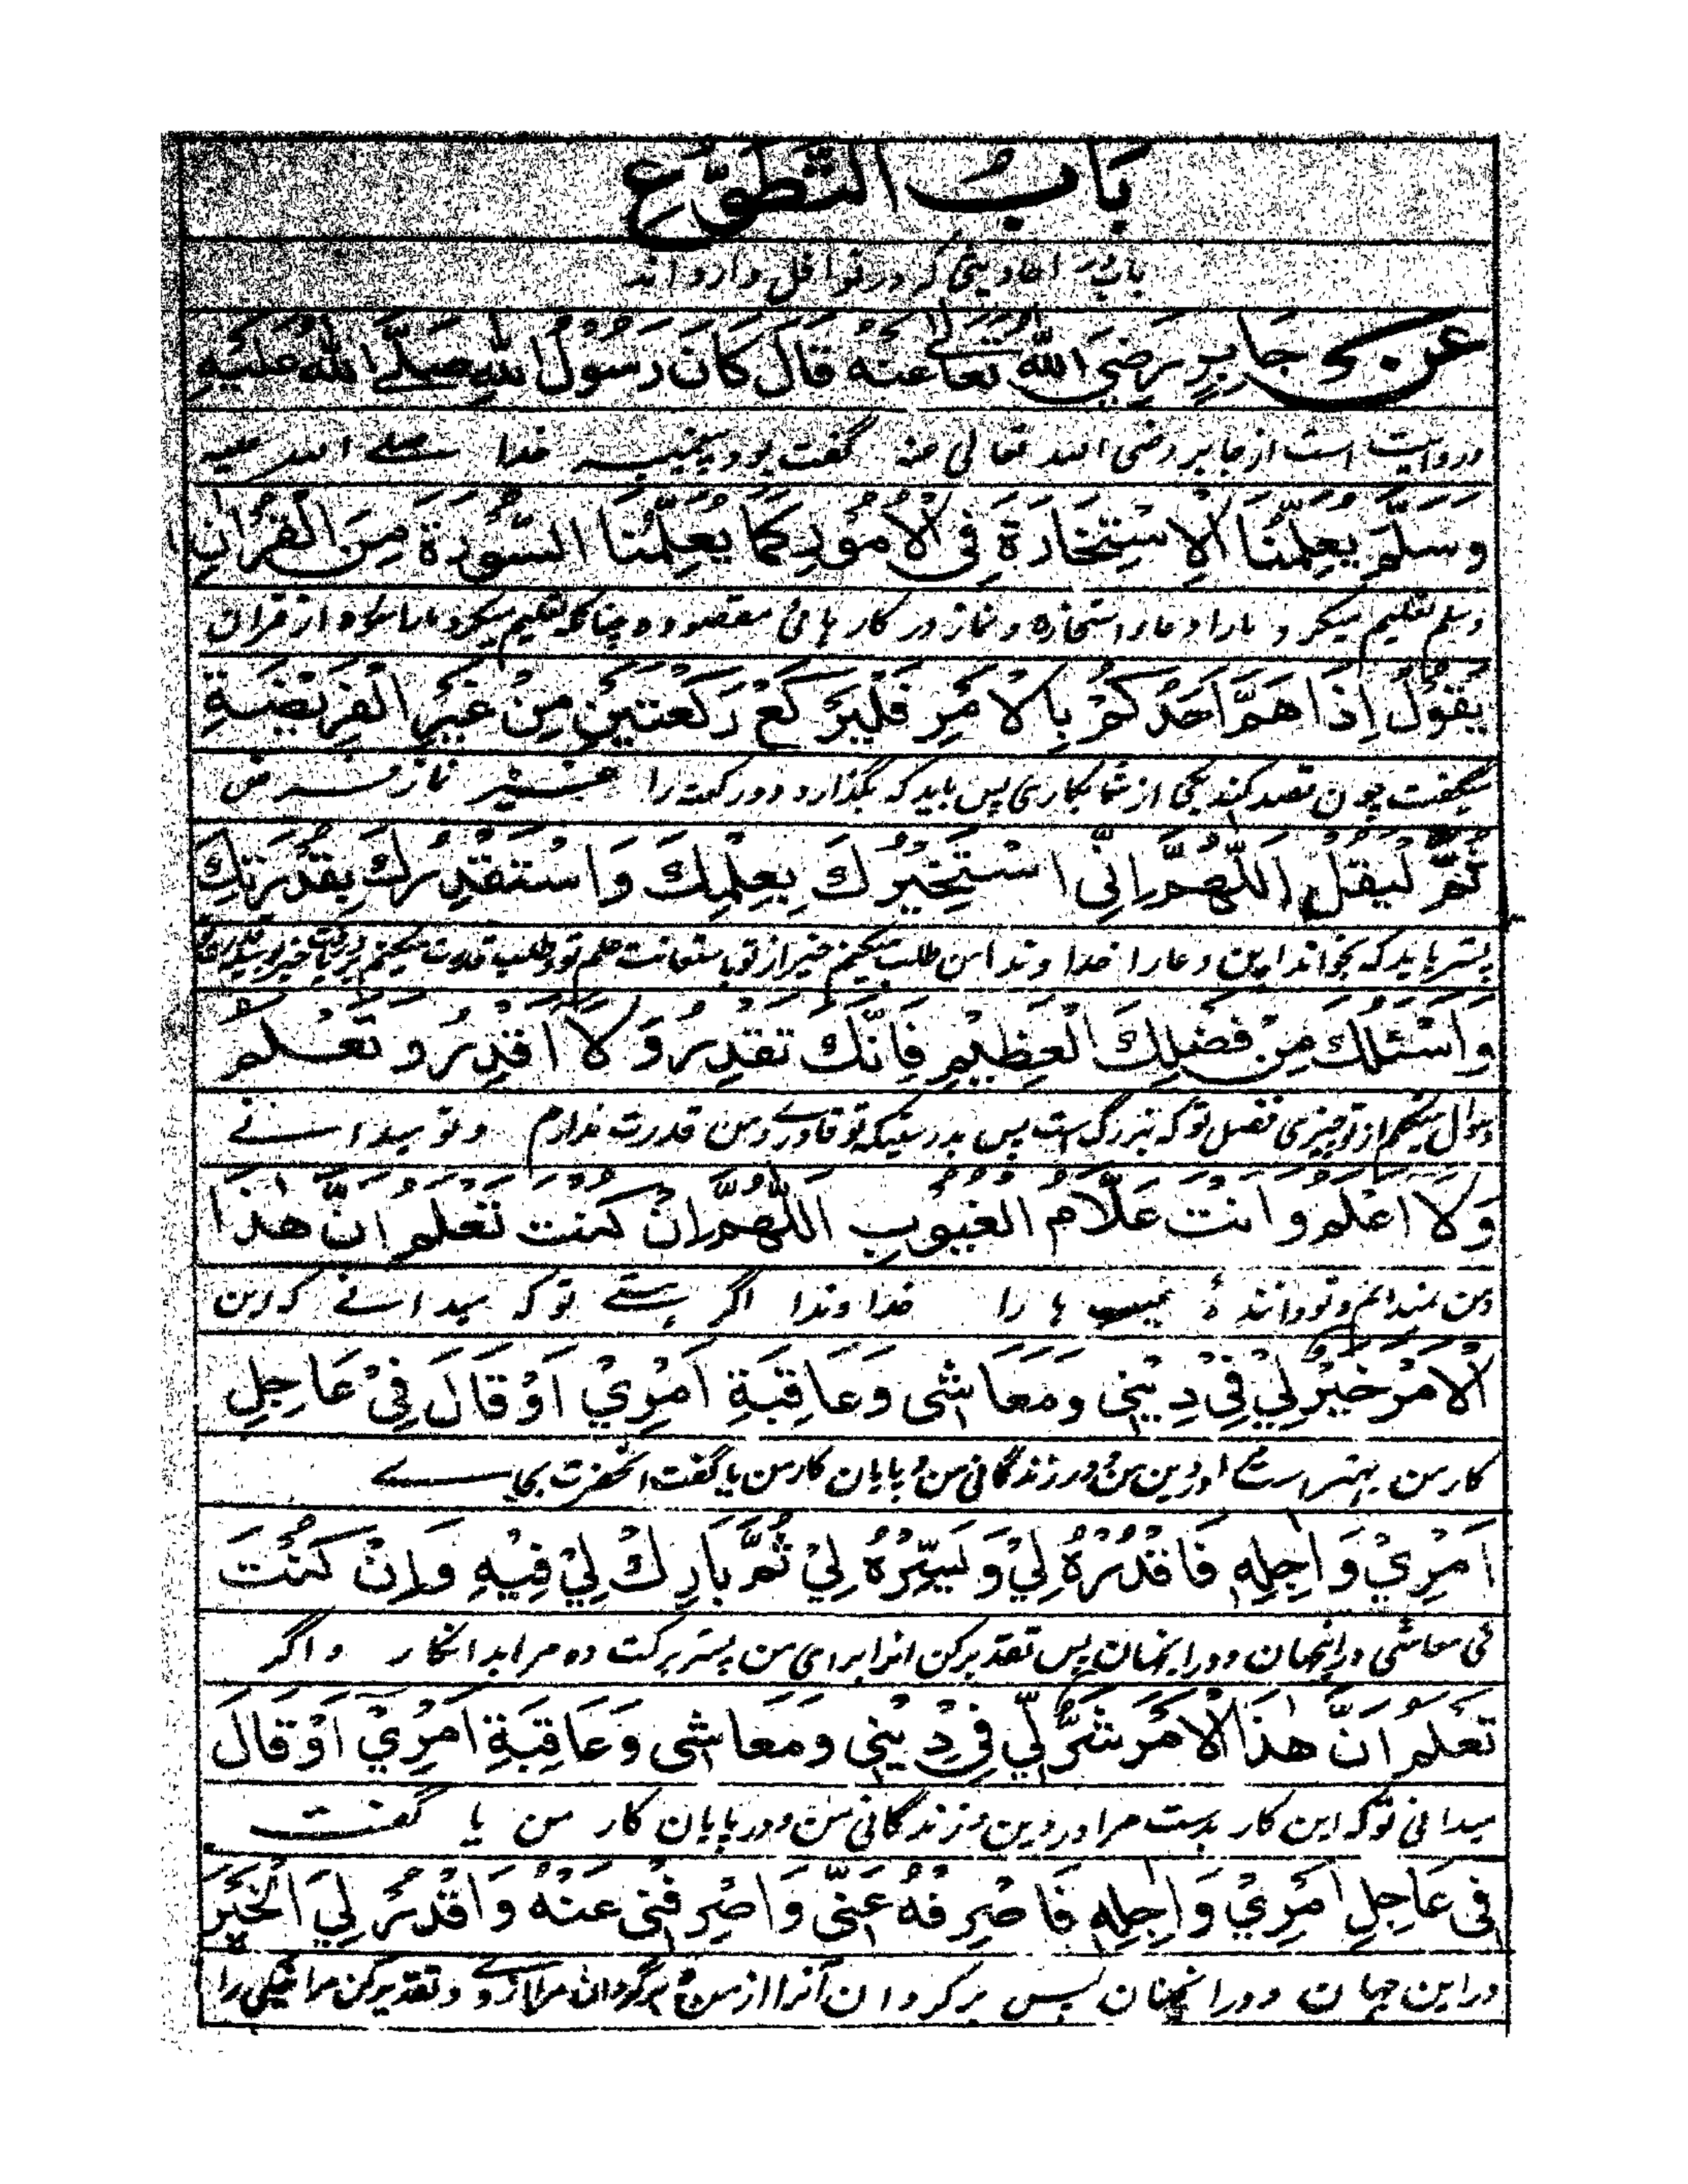 بَابُ التَّطَوُّعِ
باب در احادیثی که در نوافل وارد اند
عَنْ جَابِرٍ رَضِيَ اللهُ تَعَالَى عَنْهُ قَالَ كَانَ رَسُوْلُ اللهِ صَلَّى اللهُ عَلَيْهِ
و روایت است از جابر رضی الله تعالی عنه گفت بود پیغمبر خدا صلے الله علیه
وَسَلَّمَ يُعَلِّمُنَا الْاِسْتِخَارَةَ فِى الْاُمُوْرِ كَمَا يُعَلِّمُنَا السُّوْرَةَ مِنَ الْقُرْاٰنِ
وسلم تعلیم میکرد ما را دعاء استخاره و نماز در کار هائ مقصوده چنانکه تعلیم میکرد ما را سوره از قران
يَقُوْلُ اِذَا هَمَّ اَحَدُكُمْ بِالْاَمْرِ فَلْيَرْكَعْ رَكْعَتَيْنِ مِنْ غَيْرِ الْفَرِيْضَةِ
میگفت چون قصد کند یکی از شما بکاری پس باید که بگذارد دو رکعت را غیر نماز فرض
ثُمَّ لْيَقُلْ اَللّٰهُمَّ اِنِّى اَسْتَخِيْرُكَ بِعِلْمِكَ وَاَسْتَقْدِرُكَ بِقُدْرَتِكَ
پستر باید که بخواند این دعا را خدا وندا من طلب میکنم خیر از تو باستعانت علم تو و طلب قدرت میکنم
وَاَسْئَلُكَ مِنْ فَضْلِكَ الْعَظِيْمِ فَاِنَّكَ تَقْدِرُ وَلَا اَقْدِرُ وَتَعْلَمُ
وسوال میکنم از تو چیزی فضل تو که بزرگ است پس بدرستیکه تو قادرے و من قدرت ندارم و تو میدانے
وَلَا اَعْلَمُ وَاَنْتَ عَلَّامُ الْغُيُوْبِ اَللّٰهُمَّ اِنْ كُنْتَ تَعْلَمُ اَنَّ هٰذَا
ومن نمیدانم و تو دانندهٔ غیب ها را خدا وندا اگر هستے تو که میدانے که این
الْاَمْرَ خَيْرٌ لِيْ فِيْ دِيْنِى وَمَعَاشِى وَعَاقِبَةِ اَمْرِيْ اَوْ قَالَ فِيْ عَاجِلِ
کار من بهتر است در دین من و در زندگانی من و پایان کار من یا گفت انحضرت بجاے
اَمْرِيْ وَاٰجِلِهٖ فَاقْدُرْهُ لِيْ وَيَسِّرْهُ لِيْ ثُمَّ بَارِكْ لِيْ فِيْهِ وَاِنْ كُنْتَ
فی معاشی در اینجهان و در انجهان پس تقدیر کن انرا برای من پستر برکت ده مرا بدانکار و اگر
تَعْلَمُ اَنَّ هٰذَا الْاَمْرَ شَرٌّ لِّيْ فِيْ دِيْنِى وَمَعَاشِى وَعَاقِبَةِ اَمْرِيْ اَوْ قَالَ
میدانی تو که این کار بدست مرا در دین و زندگانی من و در پایان کار من یا گفت
فِى عَاجِلِ اَمْرِيْ وَاٰجِلِهٖ فَاصْرِفْهُ عَنِّى وَاصْرِفْنِى عَنْهُ وَاقْدُرْ لِيَ الْخَيْرَ
در این جهان و در انجهان پس بر گردان آنرا از من و بر گردان مرا ازو و تقدیر کن مرا نیکی را